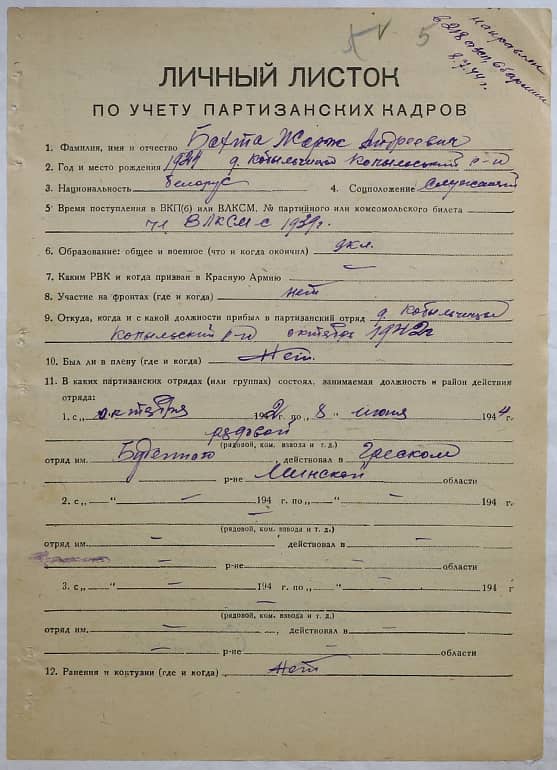 5
направлен
8.7.44 г.
ЛИЧНЫЙ ЛИСТОК
ПО УЧЕТУ ПАРТИЗАНСКИХ КАДРОВ
1. Фамилия, имя и отчество Бахта Жорж Андреевич
2. Год и место рождения д. Копыльский р-н
3. Национальность белорус 4. Соцположение Служащий
5. Время поступления в ВКП(б) или ВЛКСМ, № партийного или комсомольского билета
чл. ВЛКСМ с 1939г.
6. Образование: общее и военное (что и когда окончил) 9кл.
7. Каким РВК и когда призван в Красную Армию —
8. Участие на фронтах (где и когда) нет
9. Откуда, когда и с какой должности прибыл в партизанский отряд д.
Копыльский р-н октябрь 1942г
10. Был ли в плену (где и когда) Нет.
11. В каких партизанских отрядах (или группах) состоял, занимаемая должность и район действия
отряда:
1. с „ октября 1942 г. по „ 8 " июля 1944 г.
рядовой
(рядовой, ком. взвода и т. д.)
отряд им. Буденного, действовал в Греском
р-не Минской области
2. с „ — " — 194 г. по „ — " — 194 г.
—
(рядовой, ком. взвода и т. д.)
отряд им. — действовал в —
— р-не — области
3. с „ — " — 194 г. по „ — " — 194 г
—
(рядовой, ком. взвода и т. д.)
отряд им. — , действовал в —
— р-не — области
12. Ранения и контузии (где и когда) Нет